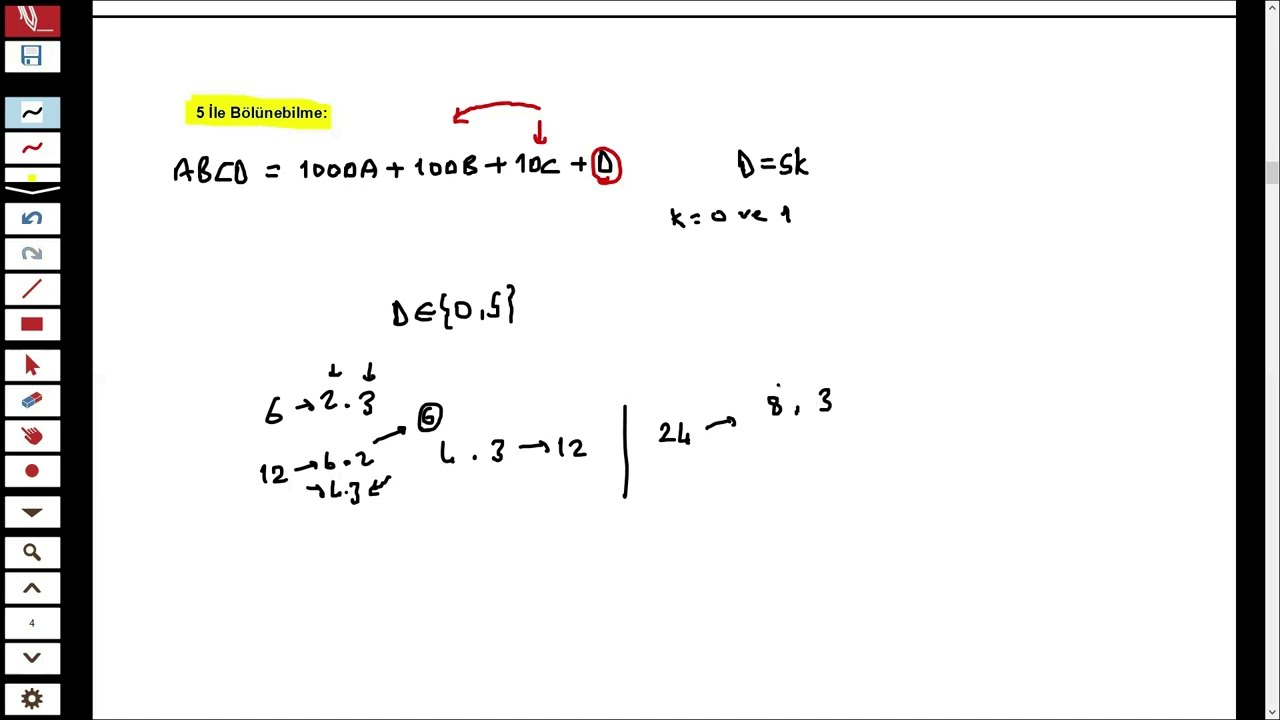 5 İle Bölünebilme:
ABCD = 1000A + 100B + 10C + D
D = 5k
k = 0 ve 1
D ∈ {0,5}
6 → 2 . 3
12 → 6 . 2 → 6
→ 4 . 3
4 . 3 → 12
24 → 8 . 3
4